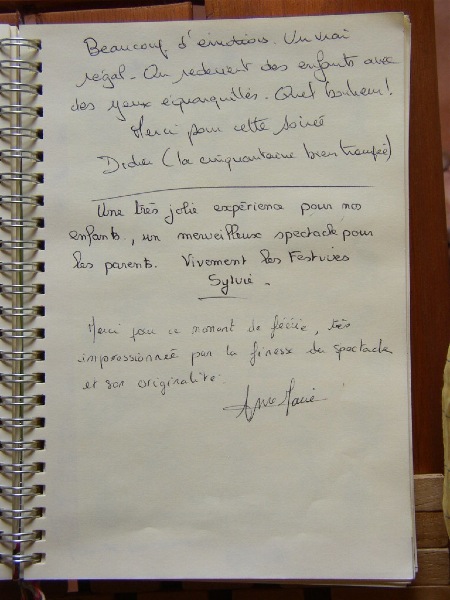 Beaucoup d'émotions. Un vrai
régal. On redevient des enfants avec
des yeux écarquillés. Quel bonheur!
Merci pour cette soirée
Didier (la cinquantaine bien trempée)
Une très jolie expérience pour nos
enfants, un merveilleux spectacle pour
les parents. Vivement les Festives
Sylvie.
Merci pour ce moment de féérie, très
impressionnée par la finesse du spectacle
et son originalité.
Anne Marie